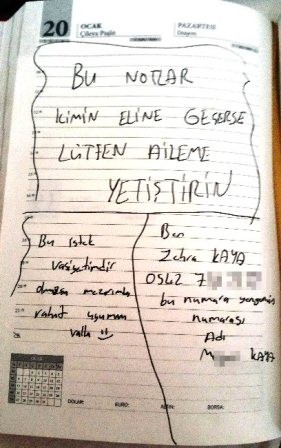 20 OCAK PAZARTESİ
BU NOTLAR
KİMİN ELİNE GEÇERSE
LÜTFEN AİLEME
YETİŞTİRİN
Bu istek
vasiyetimdir
olmazsa mezarımda
rahat uyumam
valla
Ben
Zehra KAYA
0542 7
bu numara yengemin
numarası
Adı
M KAYA
OCAK
DOLAR: EURO: ALTIN: BORSA: